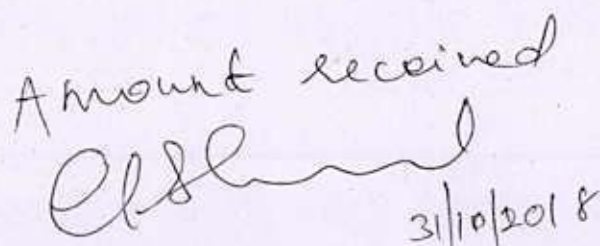 Amount received
31/10/2018